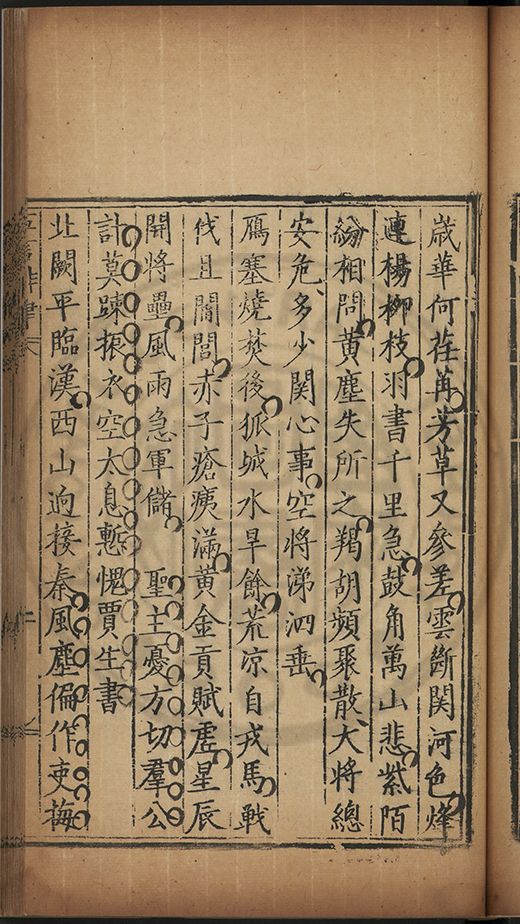 歲華何荏苒芳草又參差雲斷関河色烽
連楊柳枝羽書千里急鼓角萬山悲紫陌
紛相問黃塵失所之羯胡頻聚散大將總
安危多少関心事空將涕泗垂
鴈塞燒焚後狐城水旱餘荒凉自戎馬戰
伐且閭閻赤子瘡痍滿黃金貢賦虛星辰
開將壘風雨急軍儲　聖主憂方切羣公
計莫踈振衣空太息慙愧賈生書
北闕平臨漢西山逈接秦風塵偏作吏梅